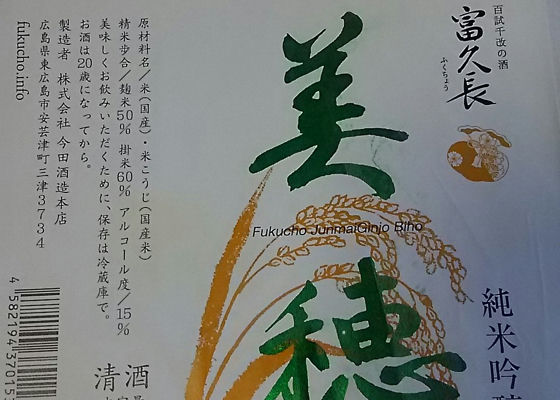 百試千改の酒
富久長
ふくちょう
純米吟醸
美穂
Fukucho JunmaiGinjo Biho
原材料名／米（国産）・米こうじ（国産米）
精米歩合／麹米50% 掛米60% アルコール度／15%
美味しくお飲みいただくために、保存は冷蔵庫で。
お酒は20歳になってから。
製造者 株式会社 今田酒造本店
広島県東広島市安芸津町三津3734
fukucho.info
清酒
4 582194 37015